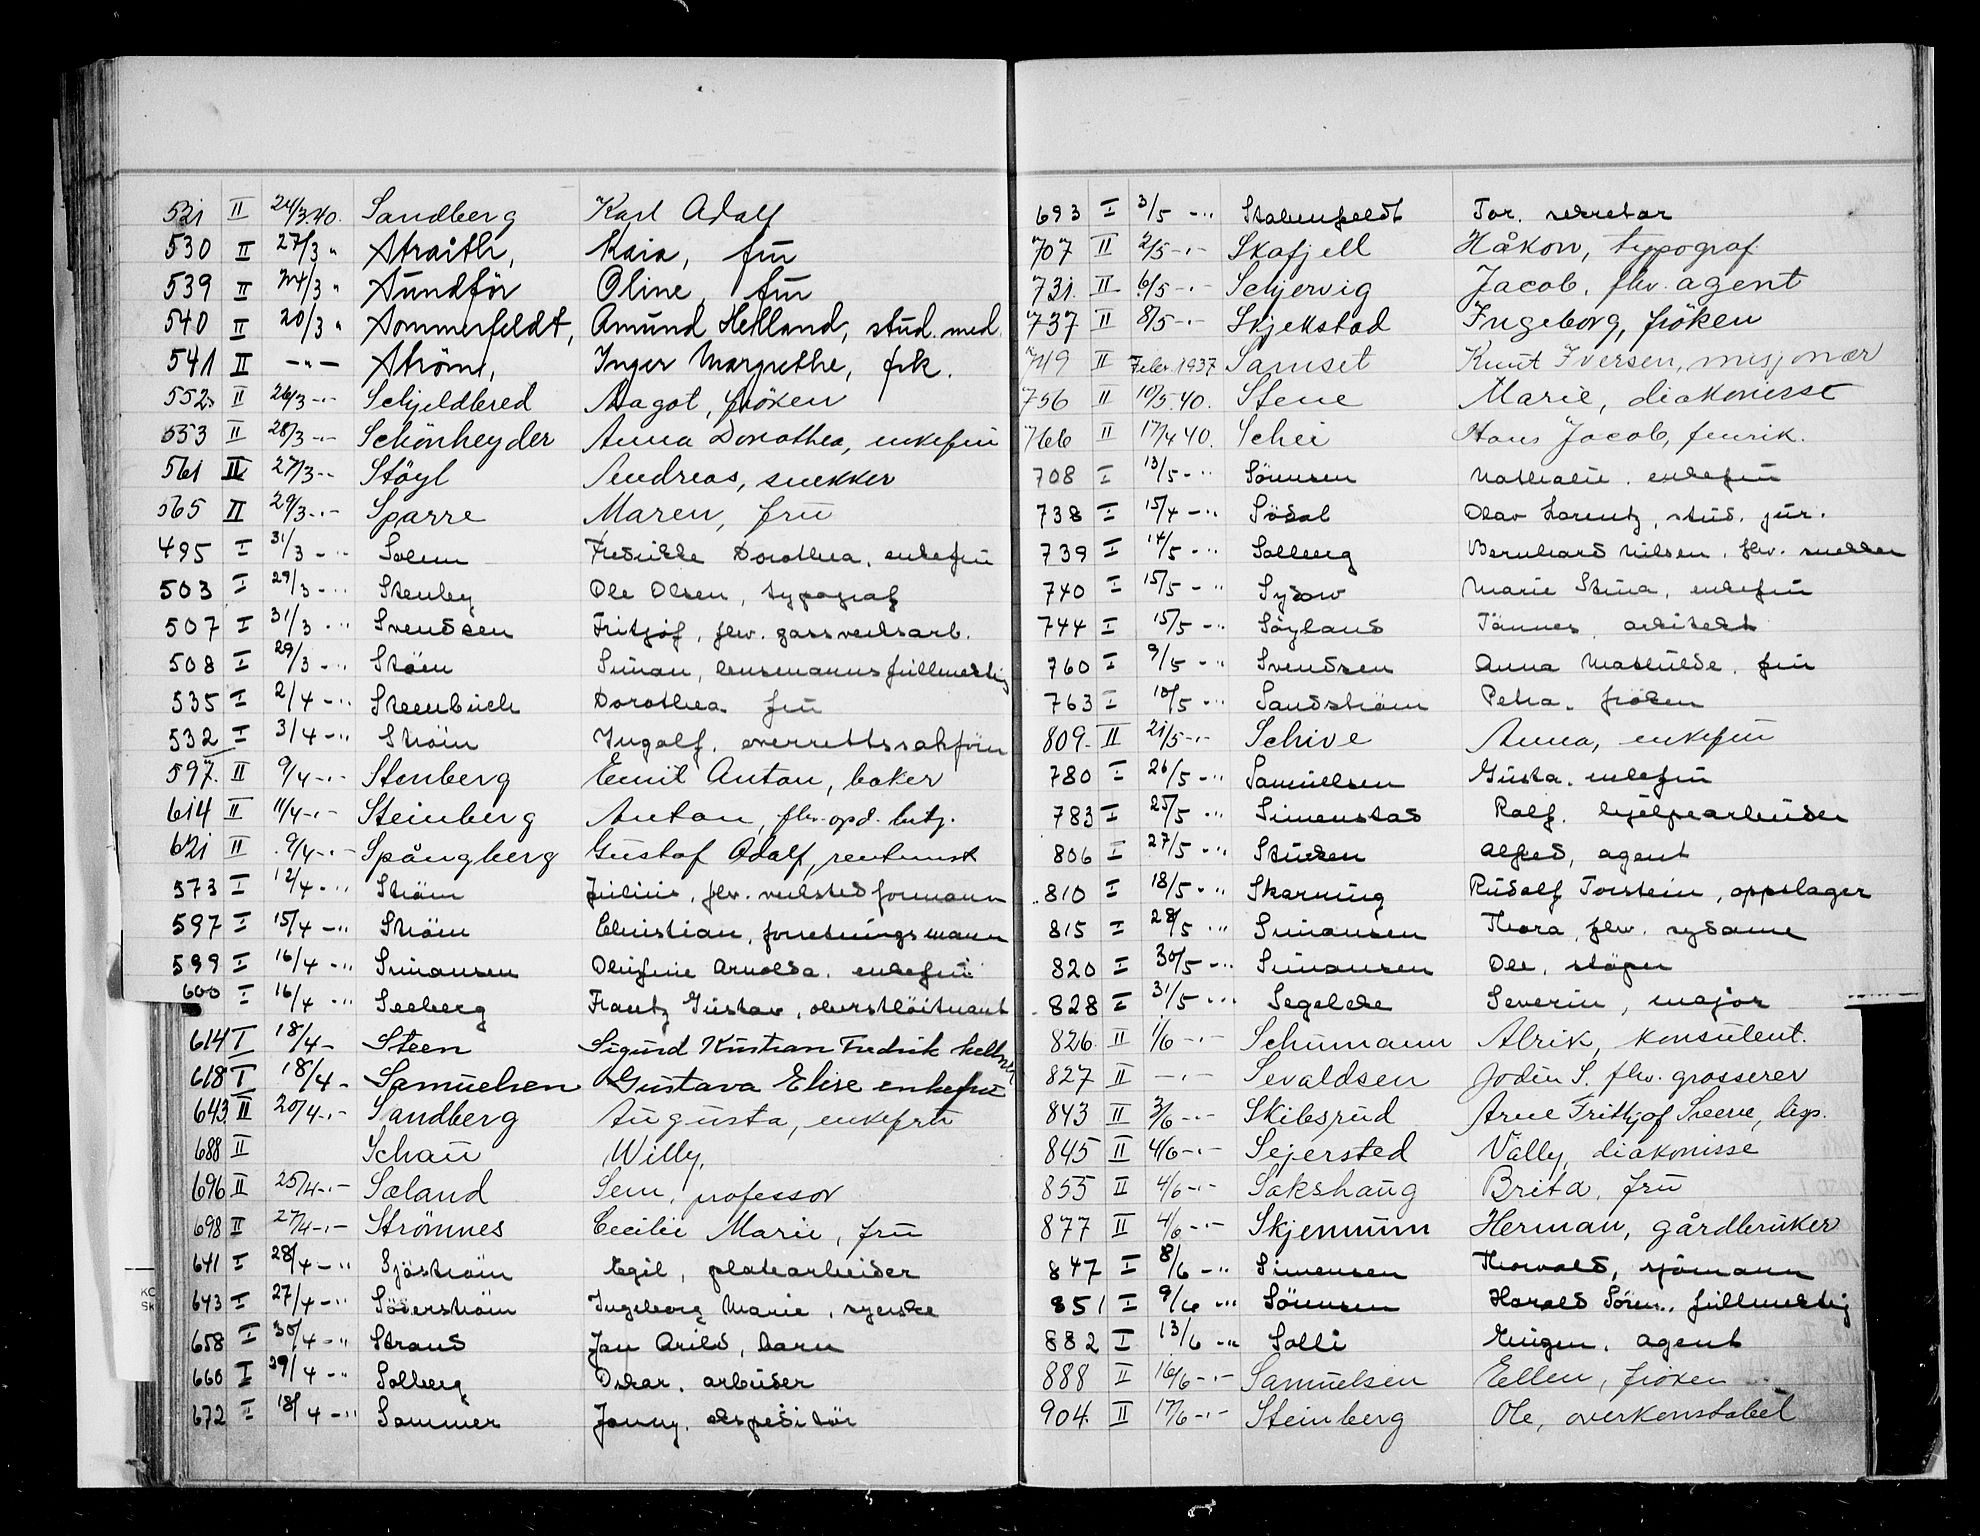 521 II 24/3.40. Sandberg Karl Adolf
530 II 27/3 " Straith, Kaia, frü
539 II 24/3 " Sundför Oline, frü
540 II 20/3 " Sommerfeldt, Amund Helland, stud. med.
541 II -"- Ström, Inger Margrethe, frk.
552 II 26/3 -"- Schjeldbred Aagot, fröken
553 II 28/3 -"- Schönheyder Anna Dorothea, enkefrü
561 II 27/3 -"- Stöyl Andreas, snekker
565 II 29/3 -"- Sparre Maren, frü
495 I 31/3 -"- Solem Fredrikke Dorothea, enkefrü
503 I 29/3 -"- Stenby Ole Olsen, typograf
507 I 31/3 -"- Svendsen Fritjof, fhv. gassverksarb.
508 I 29/3 -"- Ström Simon, lensmannsfüllmektig
535 I 2/4 -"- Steenbuch Dorothea frü
532 I 3/4 -"- Ström Ingolf, overrettssakförer
597. II 9/4 -"- Stenberg Emil Anton, baker
614 II 11/4 -"- Steinberg Anton, fhv. opd. betj.
621 II 9/4 -"- Spångberg Güstaf Adolf, rentenist
573 I 12/4 -"- Ström Julius, fhv. verkstedformann
597 I 15/4 -"- Ström Christian, forretningsmann
599 I 16/4 -"- Simonsen Olufine Arnolda, enkefrü
600 I 16/4 -"- Seeberg Frantz Güstav, oberstlöitnant
614 I 18/4 - Steen Sigurd Kristian Fredrik kellner
618 I 18/4 - Samuelsen Gustava Elise enkefrue
643 II 20/4 -"- Sandberg Augusta, enkefrü
688 II Schaü Willy,
696 II 25/4 -"- Sæland Sem, professor
698 II 27/4 -"- Strömnes Cecilie Marie, frü
641 I 28/4 -"- Sjöström Egil, platearbeider
643 I 27/4 -"- Söderström Ingeborg Marie, syerske
658 I 30/4 -"- Strand Jan Arild, barn
660 I 29/4 -"- Solberg Oskar, arbeider
672 I 18/4 -"- Sommer Jonny, ekspeditör
693 I 3/5 -"- Stabenfeldt Tor, sekretær
707 II 2/5 -"- Skafjell Håkon, typograf
731. II 6/5 -"- Schjervig Jacob, fhv. agent
737 II 8/5 -"- Skjekstad Ingeborg, fröken
749 II Febr. 1937 Samset Knut Iversen, misjonær
756 II 10/5.40. Stene Marie, diakonisse
766 II 17/4 40. Schei Hans Jacob, fenrik.
708 I 13/5 -"- Sörensen Nathalie, enkefrü
738 I 15/4 -"- Södal Olav Lorentz, stud. jur.
739 I 14/5 -"- Solberg Bernhard Nilsen, fhv. snekker
740 I 15/5 -"- Sydow Marie Stina, enkefrü
744 I 15/5 -"- Söyland Tönnes, arkitekt
760 I 9/5 -"- Svendsen Anna Mathilde, frü
763 I 10/5 -"- Sandström Petra, fröken
809. II 21/5 -"- Schive Anna, enkefrü
780 I 26/5 -"- Samuelsen Güsta, enkefrü
783 I 25/5 -"- Simenstad Rolf, hjelpearbeider
806 I 27/5 -"- Stücken Alfred, agent
810 I 18/5 -"- Skarning Rüdolf Torstein, oppslager
815 I 28/5 -"- Simonsen Thora, fhv. sydame
820 I 30/5 -"- Simonsen Ole, stöper
828 I 31/5 -"- Segelcke Severin, major
826. II 1/6 -"- Schümann Alrik, konsulent.
827 II -"- Sevaldsen Jodin S. fhv. grosserer
843 II 3/6 -"- Skibsrüd Arne Frithjof Sverre,
845 II 4/6 -"- Sejersted Vally, diakonisse
855 II 4/6 -"- Sakshaüg Brita, frü
877 II 4/6 -"- Skjennum Herman, gårdbruker
847 I 8/6 -"- Simensen Thorvald, sjömann
851 I 9/6 -"- Sörensen Harald Sören, füllmektig
882 I 13/6 -"- Solli Eügen, agent
888 II 16/6 -"- Samuelsen Ellen, fröken
904. II 17/6 -"- Steinberg Ole, overkonstabel